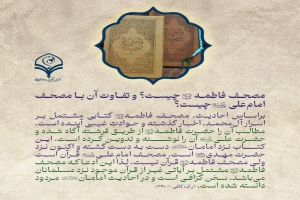 مصحف فاطمه چیست؟ و تفاوت آن با مصحف
امام علی چیست؟
براساس احادیث، مصحف فاطمه کتابی مشتمل بر
اسرار آل محمد، اخبار گذشته و حوادث غیبی آینده است.
مطالب آن را حضرت فاطمه از طریق فرشته آگاه شده و
حضرت علی آن را نوشته و تدوین کرده است. این
کتاب نزد امامان دست به دست گشته و اکنون نزد
حضرت مهدی است. مصحف امام علی قرآن است
ولی مصحف فاطمه قرآن نیست. لذا این ادعا که مصحف
فاطمه مشتمل بر آیاتی غیر از قرآن موجود نزد مسلمانان
می‌باشد، سخن گزافی است و در احادیث امامان مردود
دانسته شده است.